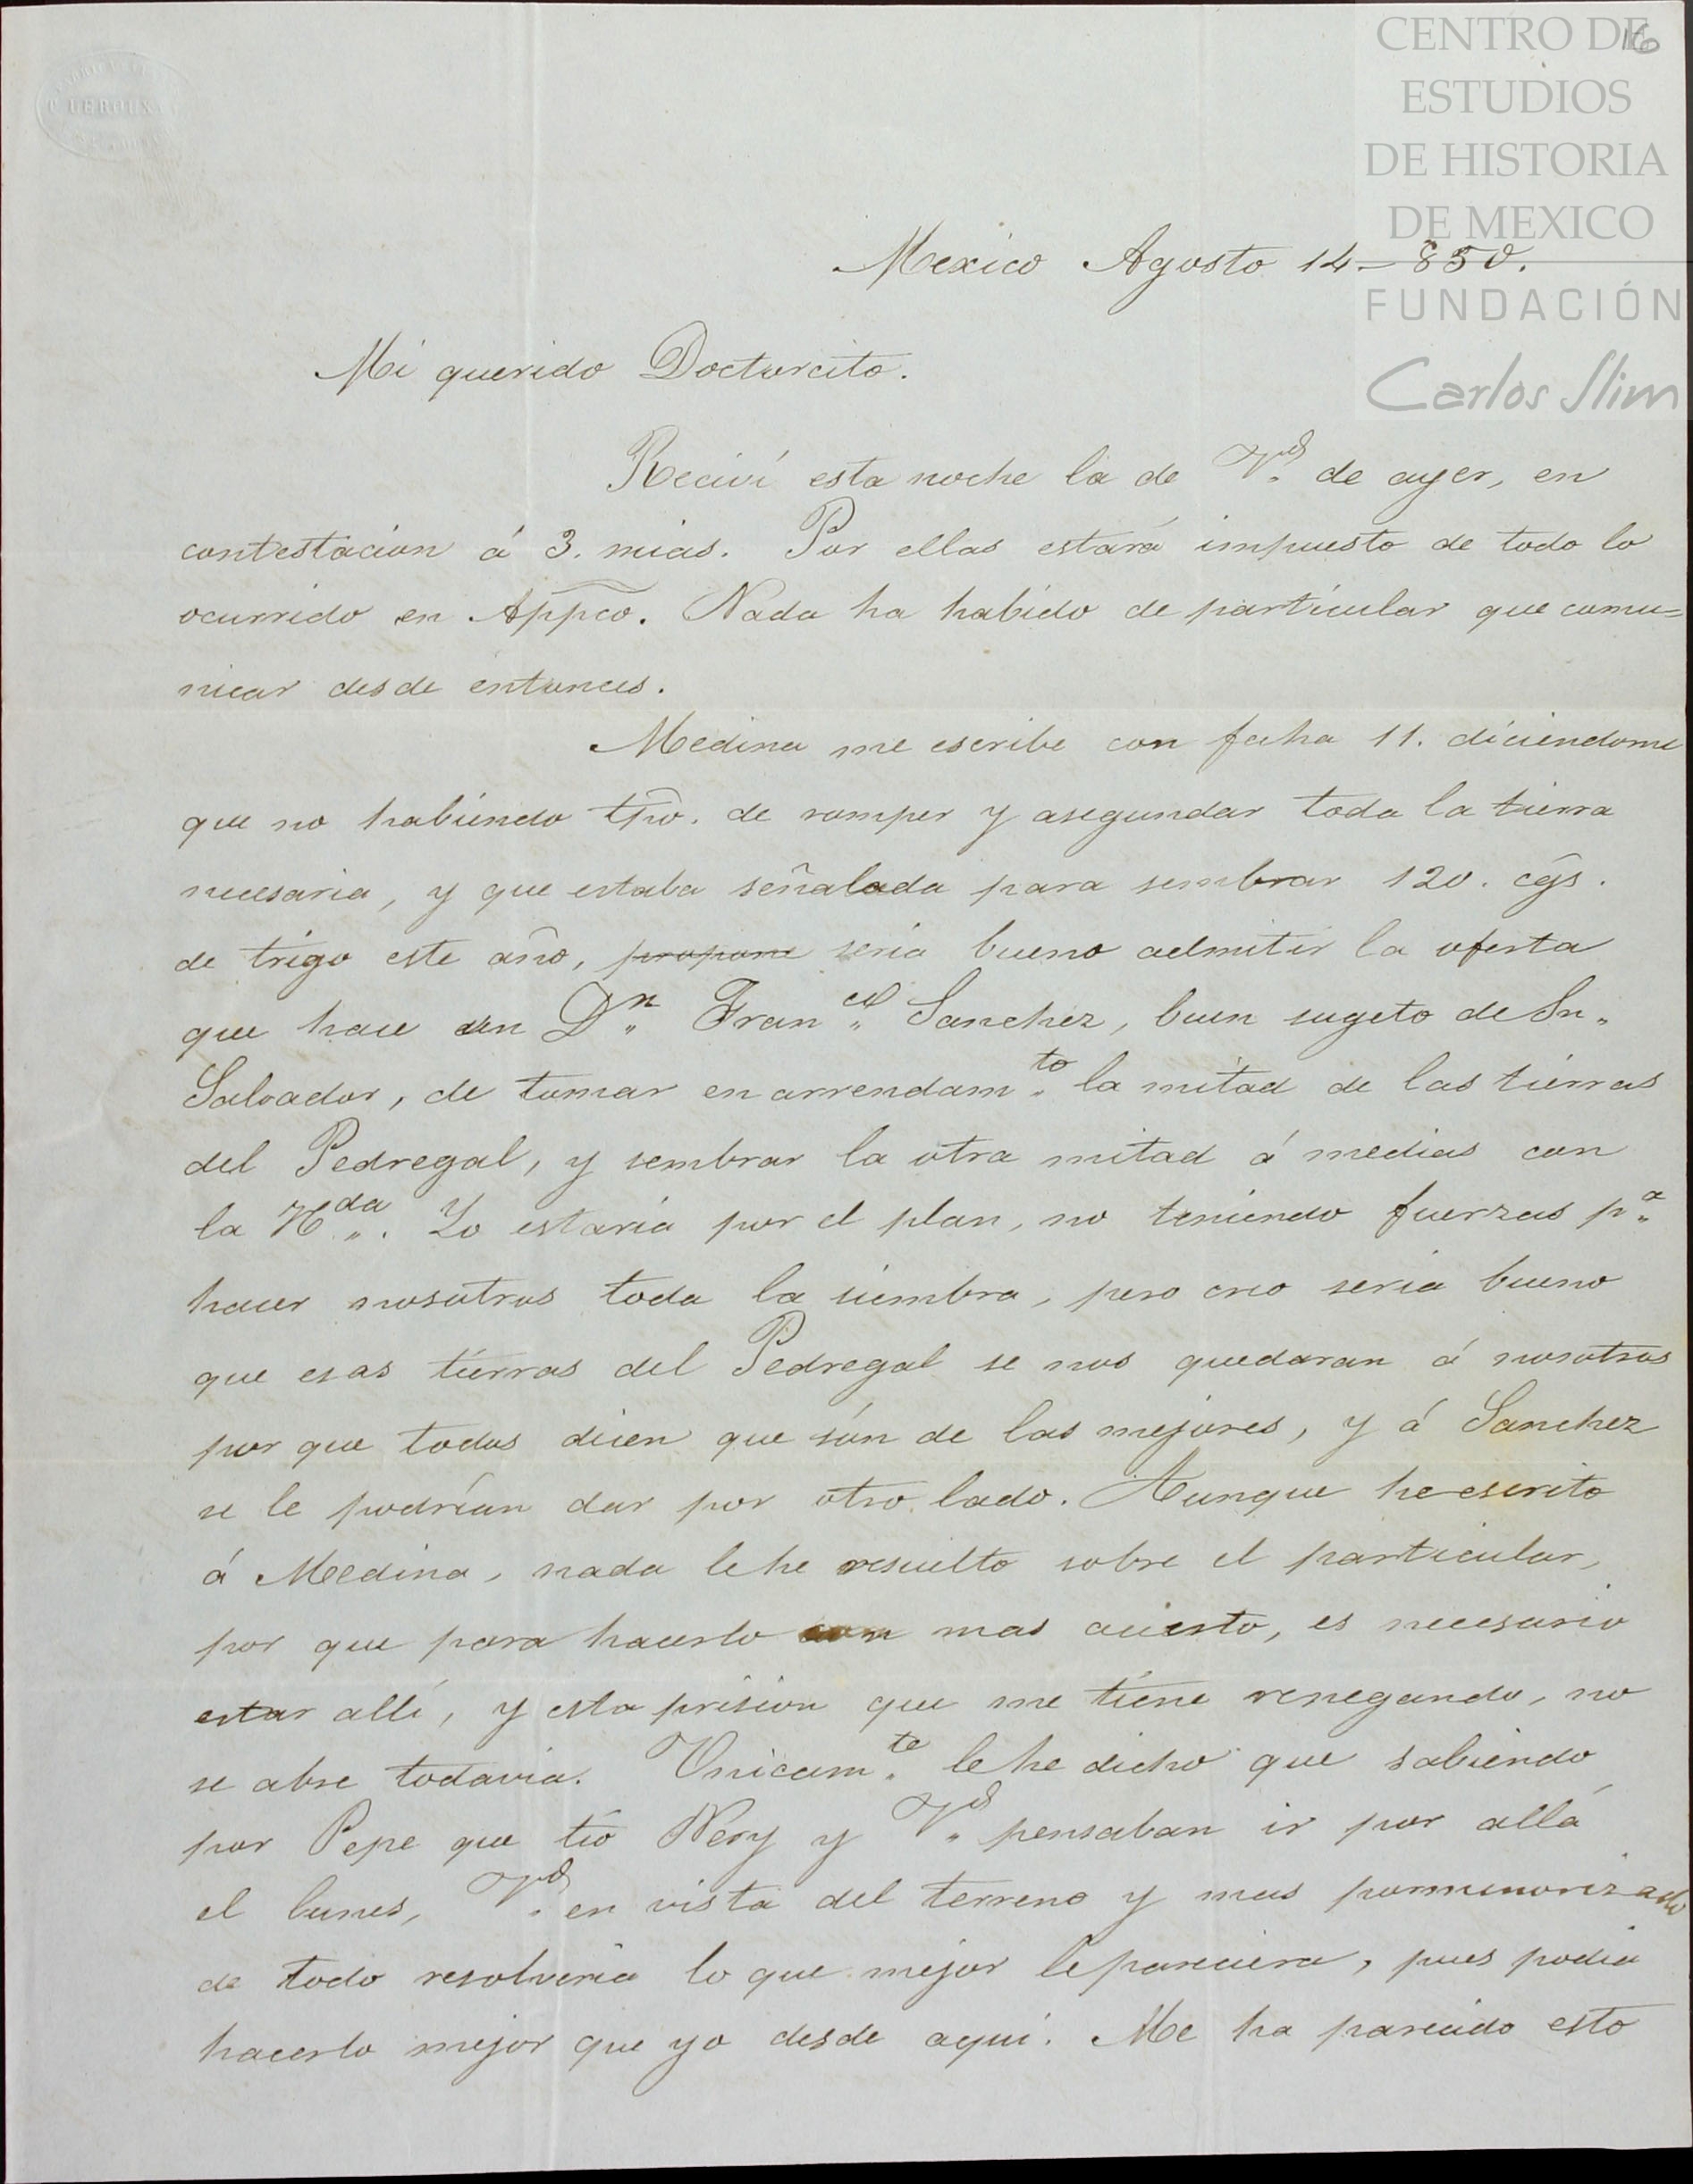 16
CENTRO DE
ESTUDIOS
DE HISTORIA
DE MEXICO
FUNDACIÓN
Carlos Slim
Mexico Agosto 14 - 850.
Mi querido Doctorcito.
Recivi esta noche la de Vd. de ayer, en
contestacion á 3. mias. Por ellas estará impuesto de todo lo
ocurrido en Appco. Nada ha habido de particular que comu=
nicar desde entonces.
Medina me escribe con fecha 11. diciendome
que no habiendo tpo. de romper y asegundar toda la tierra
necesaria, y que estaba señalada para sembrar 120. cgs.
de trigo este año, propone seria bueno admitir la oferta
que hace un Dn. Franco. Sanchez, buen sugeto de Sn.
Salvador, de tomar en arrendamto. la mitad de las tierras
del Pedregal, y sembrar la otra mitad á medias con
la Hda. Yo estaria por el plan, no teniendo fuerzas pa.
hacer nosotros toda la siembra, pero creo seria bueno
que esas tierras del Pedregal se nos quedaran á nosotros
por que todos dicen que són de las mejores, y á Sanchez
se le podrían dar por otro lado. Aunque he escrito
á Medina, nada le he resuelto sobre el particular,
por que para hacerlo con mas acierto, es necesario
estar allí, y esta prision que me tiene renegando, no
se abre todavia. Unicamte. le he dicho que sabiendo
por Pepe que tío Nery y Vd. pensaban ir por allá
el lunes, Vd. en vista del terreno y mas pormenorizado
de todo resolveria lo que mejor le pareciera, pues podia
hacerlo mejor que yo desde aquí. Me ha parecido esto